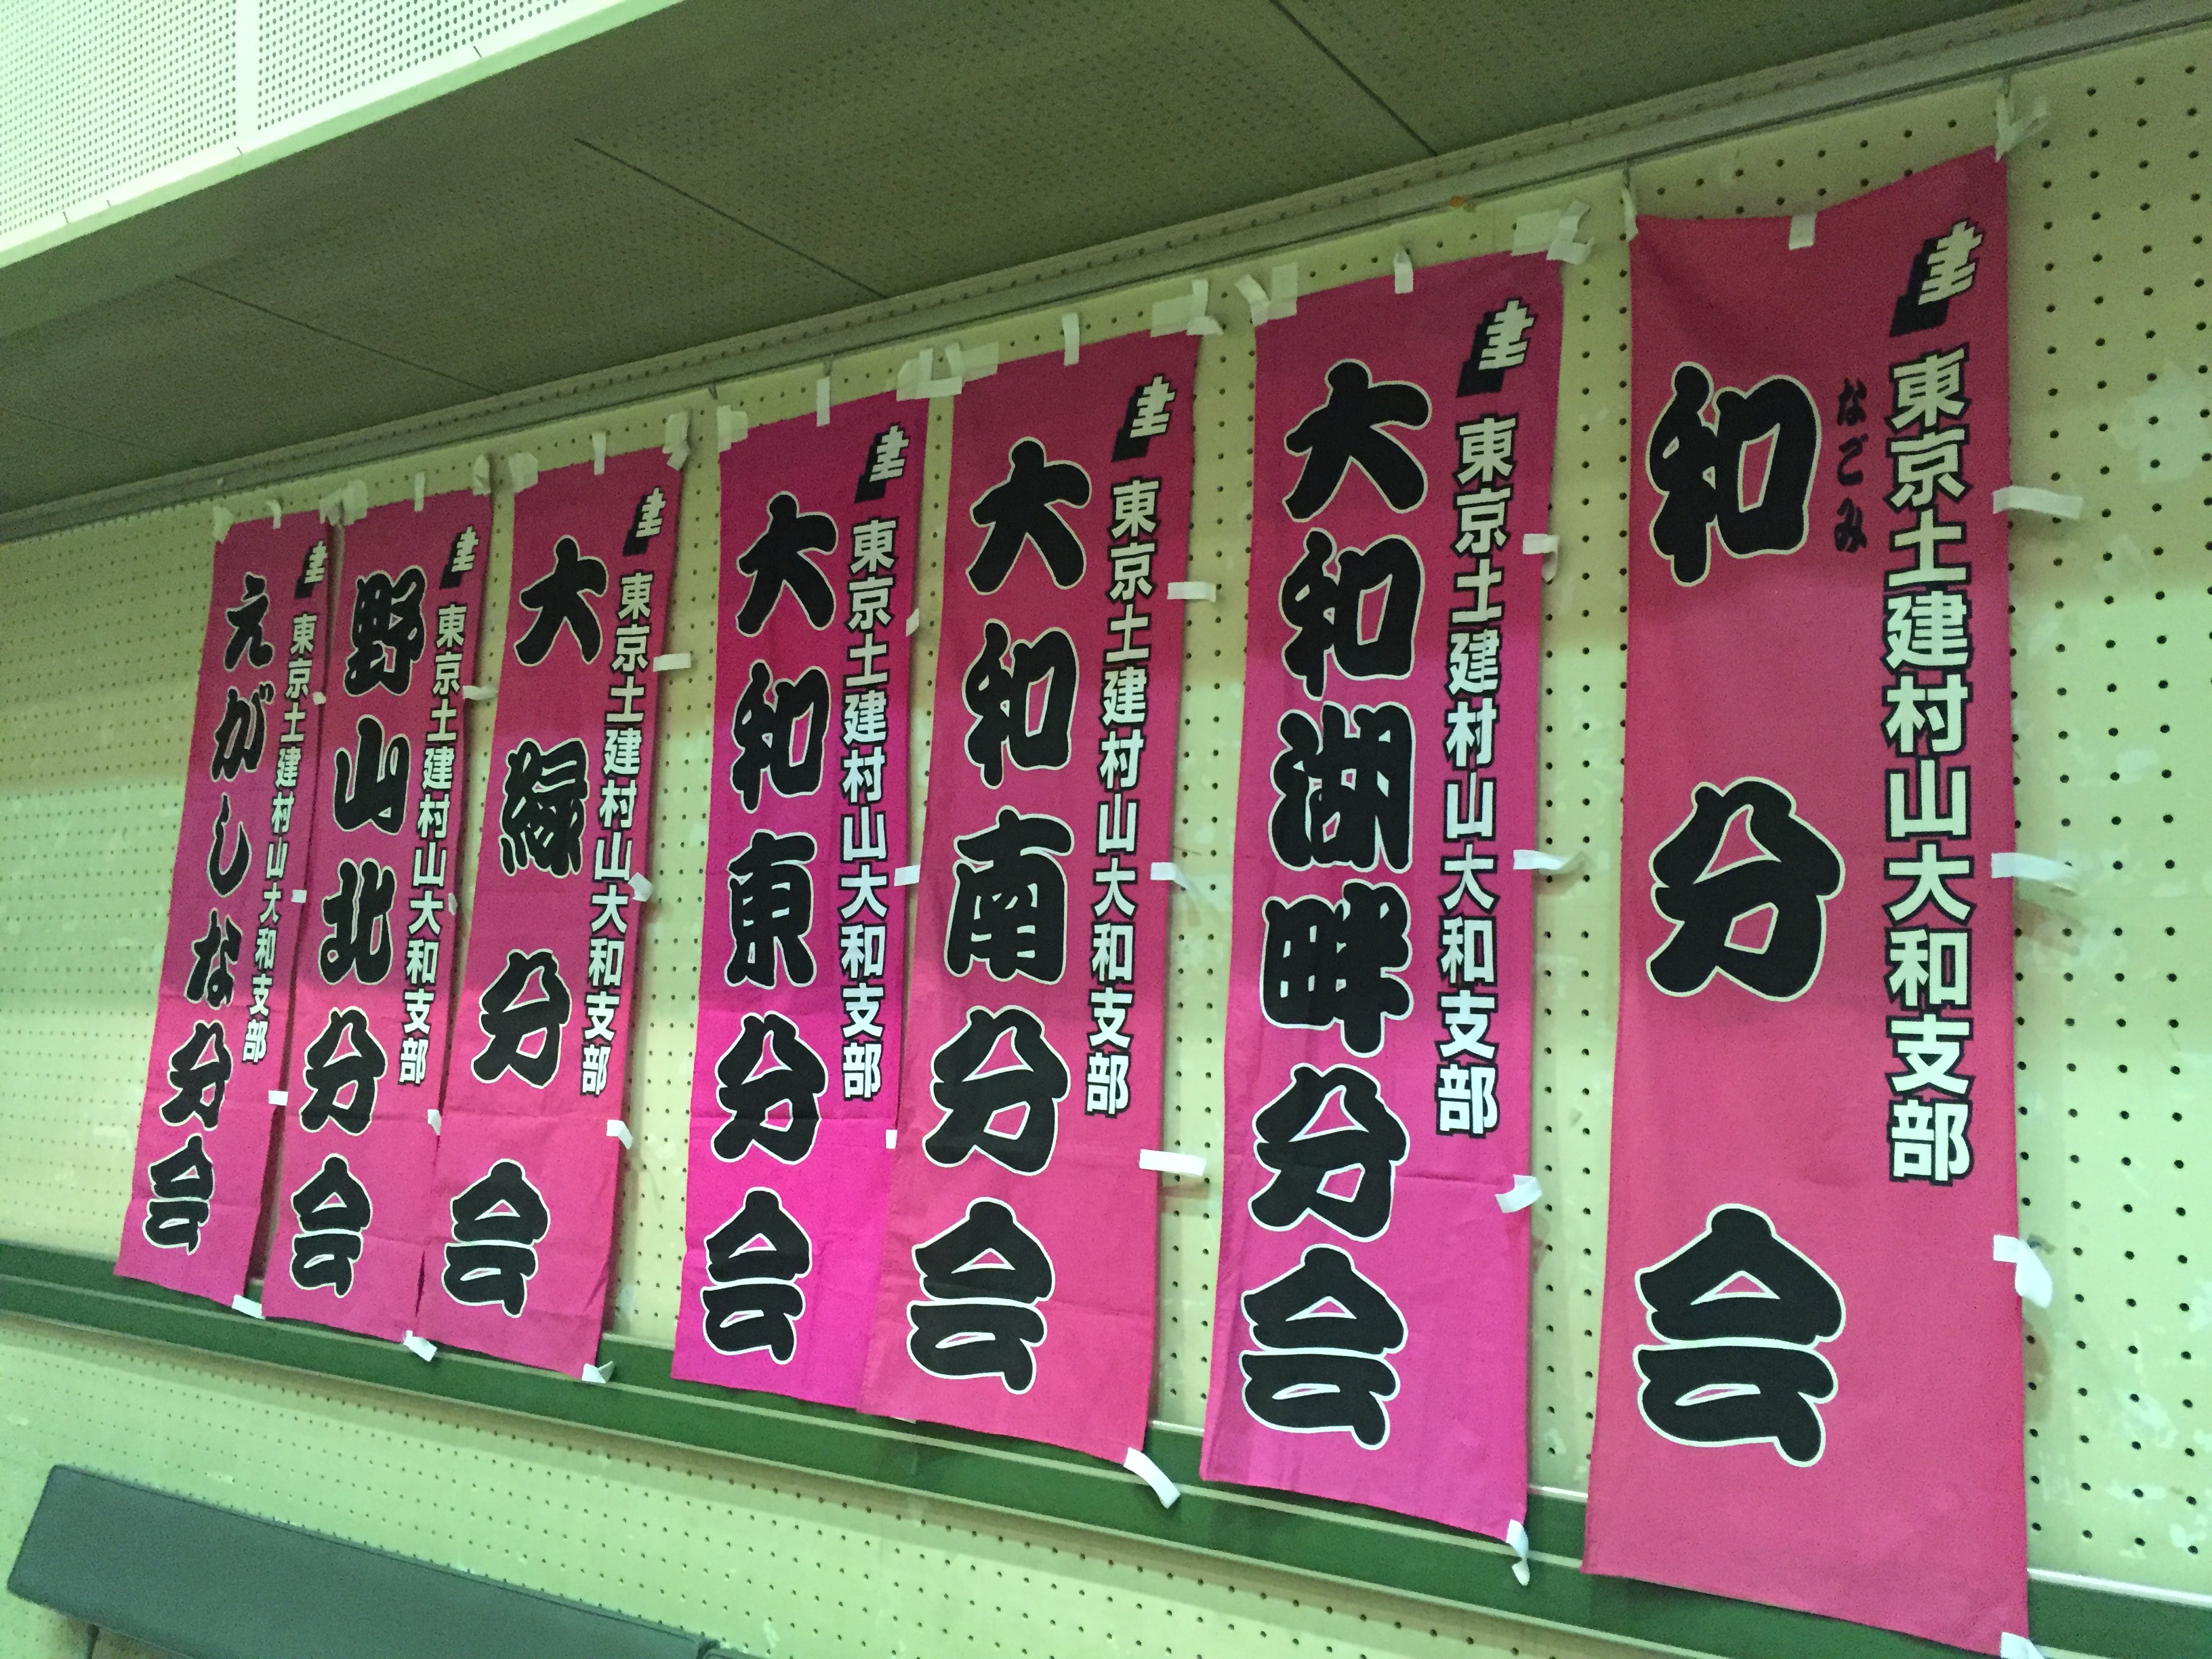 東京土建村山大和支部
なごみ
和分会
東京土建村山大和支部
大和湖畔分会
東京土建村山大和支部
大和南分会
東京土建村山大和支部
大和東分会
東京土建村山大和支部
大緑分会
東京土建村山大和支部
野山北分会
東京土建村山大和支部
えがしな分会